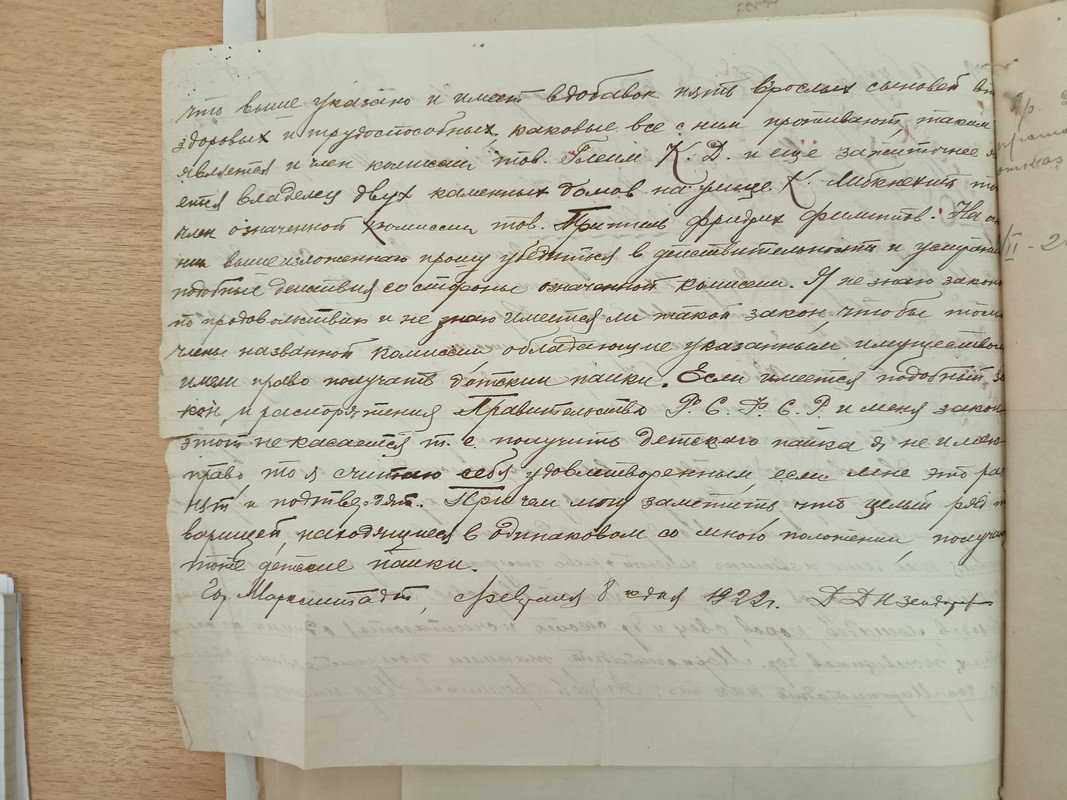 что выше указано и имеет вдобавок пять взрослых сыновей вп
здоровых и трудоспособных, каковые все с ним проживают, таким
является и член комиссии тов. Глейм К. Д. и еще зажиточнее я
ется владелец двух каменных домов на улице К. Либкнехт то
член означенной комиссии тов. Притцив Фридрих Филиппов. На ос
нии вышеизложеннаго прошу убедиться в действительности и
подобные действия со стороны означенной комиссии. Я не знаю закона
по продовольствию и не знаю имеется ли такой закон, чтобы
члены названной комиссии обладающие указанным имуществом
имели право получать детский паики. Если имеется подобный за
кон, и распоряжения Правительства Р. С. Ф. С. Р. и меня закон
этот не касается т. е получить детского пайка я не имею
право, то я считаю себя удовлетворенным если мне это раз
нят и подтвердят. Причем могу заметить что целый ряд т
варищей, находящиеся в одинаковом со мною положении, получаю
тоже детские паики.
Гор. Марксштадт, Февраля 8 го дня 1922 г. Д Д Изендорф
II - 2